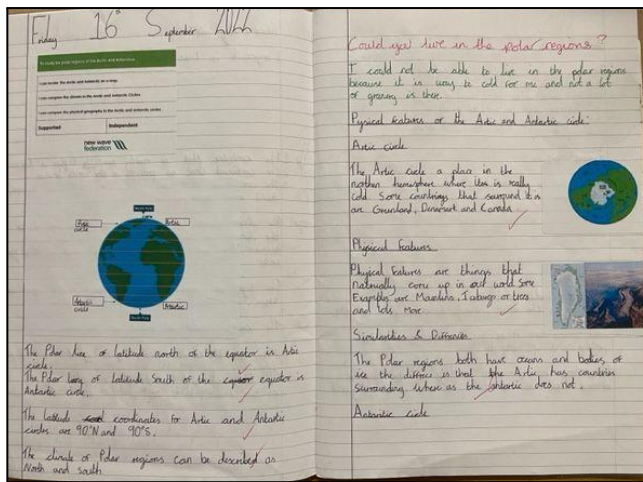 Friday 16th September 2022
To study the polar regions of the Arctic and Antarctica.
I can locate the Arctic and Antarctic on a map.
I can compare the climate in the Arctic and Antarctic Circles.
I can compare the physical geography in the Arctic and Antarctic circles.
Supported Independent
new wave
federation
North Pole
circle
Artic
circle
Antartic
South Pole
The Polar line of latitude north of the equator is Artic
circle.
The Polar of latitude South of the equator is
Antarctic circle.
The latitude coordinates for Artic and Antartic
circles are 90°N and 90°S.
The climate of Polar regions can be described as
North and south
Could you live in the polar regions?
I could not be able to live in the polar regions
because it is way to cold for me and not a lot
of greenery is there.
Pysical features of the Artic and Antartic circle:
Artic circle
The Artic circle a place in the
northen hemisphere where it is really
cold. Some countrys that surround it is
are Greenland, Denmark and Canada
Physical features
Physical features are things that
naturally come up in our world some
Examples are Mountins, Icebergs or trees
and lots more.
Similarities & Diffrences
The Polar regions both have oceans and bodies of
ice the diffrece is that the Artic has countries
surrounding where as the antartic does not.
Antarctic circle